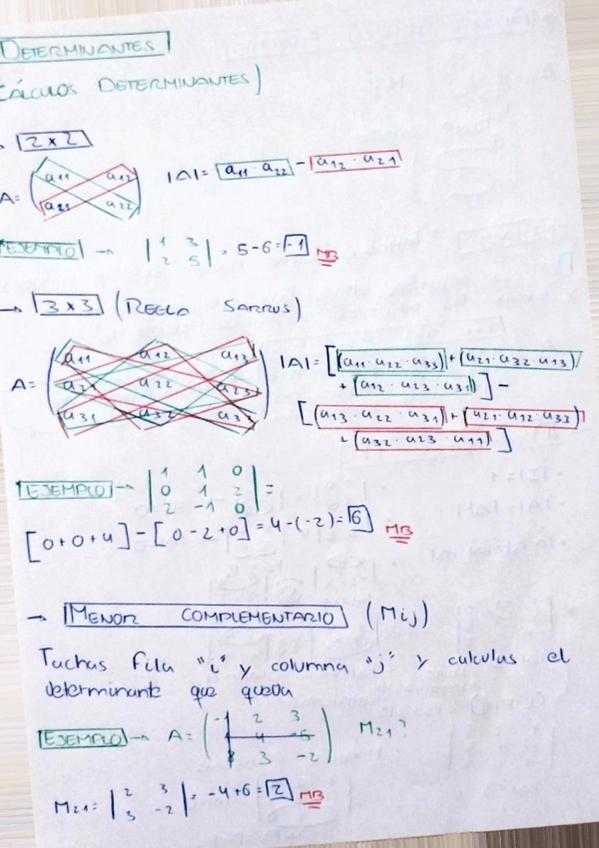 DETERMINANTES
CÁLCULOS DETERMINANTES)
2x2
A= (a11 a12
a21 a22) |A|= a11 · a22 - a12 · a21
EJEMPLO → |1 3
2 5| = 5-6=-1 MB
→ 3x3 (REGLA SARRUS)
A= (a11 a12 a13
a21 a22 a23
a31 a32 a33)
|A|= [(a11·a22·a33)+(a21·a32·a13)
+(a12·a23·a31)] -
[(a13·a22·a31)+(a21·a12·a33)
+(a32·a23·a11)]
EJEMPLO → |1 1 0
0 1 2
2 -1 0| =
[0+0+4]-[0-2+0]=4-(-2)=6 MB
→ MENOR COMPLEMENTARIO (Mij)
Tachas fila "i" y columna "j" y calculas el
determinante que queda
EJEMPLO → A= (-1 2 3
4 -5
3 -2) M21?
M21= |2 3
3 -2| = -4+6=2 MB